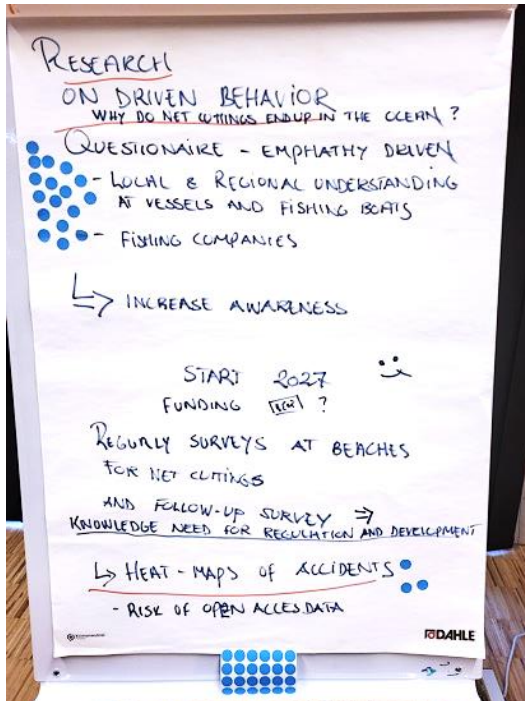 RESEARCH
ON DRIVEN BEHAVIOR
WHY DO NET CUTTINGS END UP IN THE OCEAN?
QUESTIONAIRE - EMPHATHY DRIVEN
- LOCAL & REGIONAL UNDERSTANDING
AT VESSELS AND FISHING BOATS
- FISHING COMPANIES
↳ INCREASE AWARENESS
START 2027
FUNDING ?
REGURLY SURVEYS AT BEACHES
FOR NET CUTTINGS
AND FOLLOW-UP SURVEY ⇒
KNOWLEDGE NEED FOR REGULATION AND DEVELOPMENT
↳ HEAT-MAPS OF ACCIDENTS
- RISK OF OPEN ACCES DATA
DAHLE